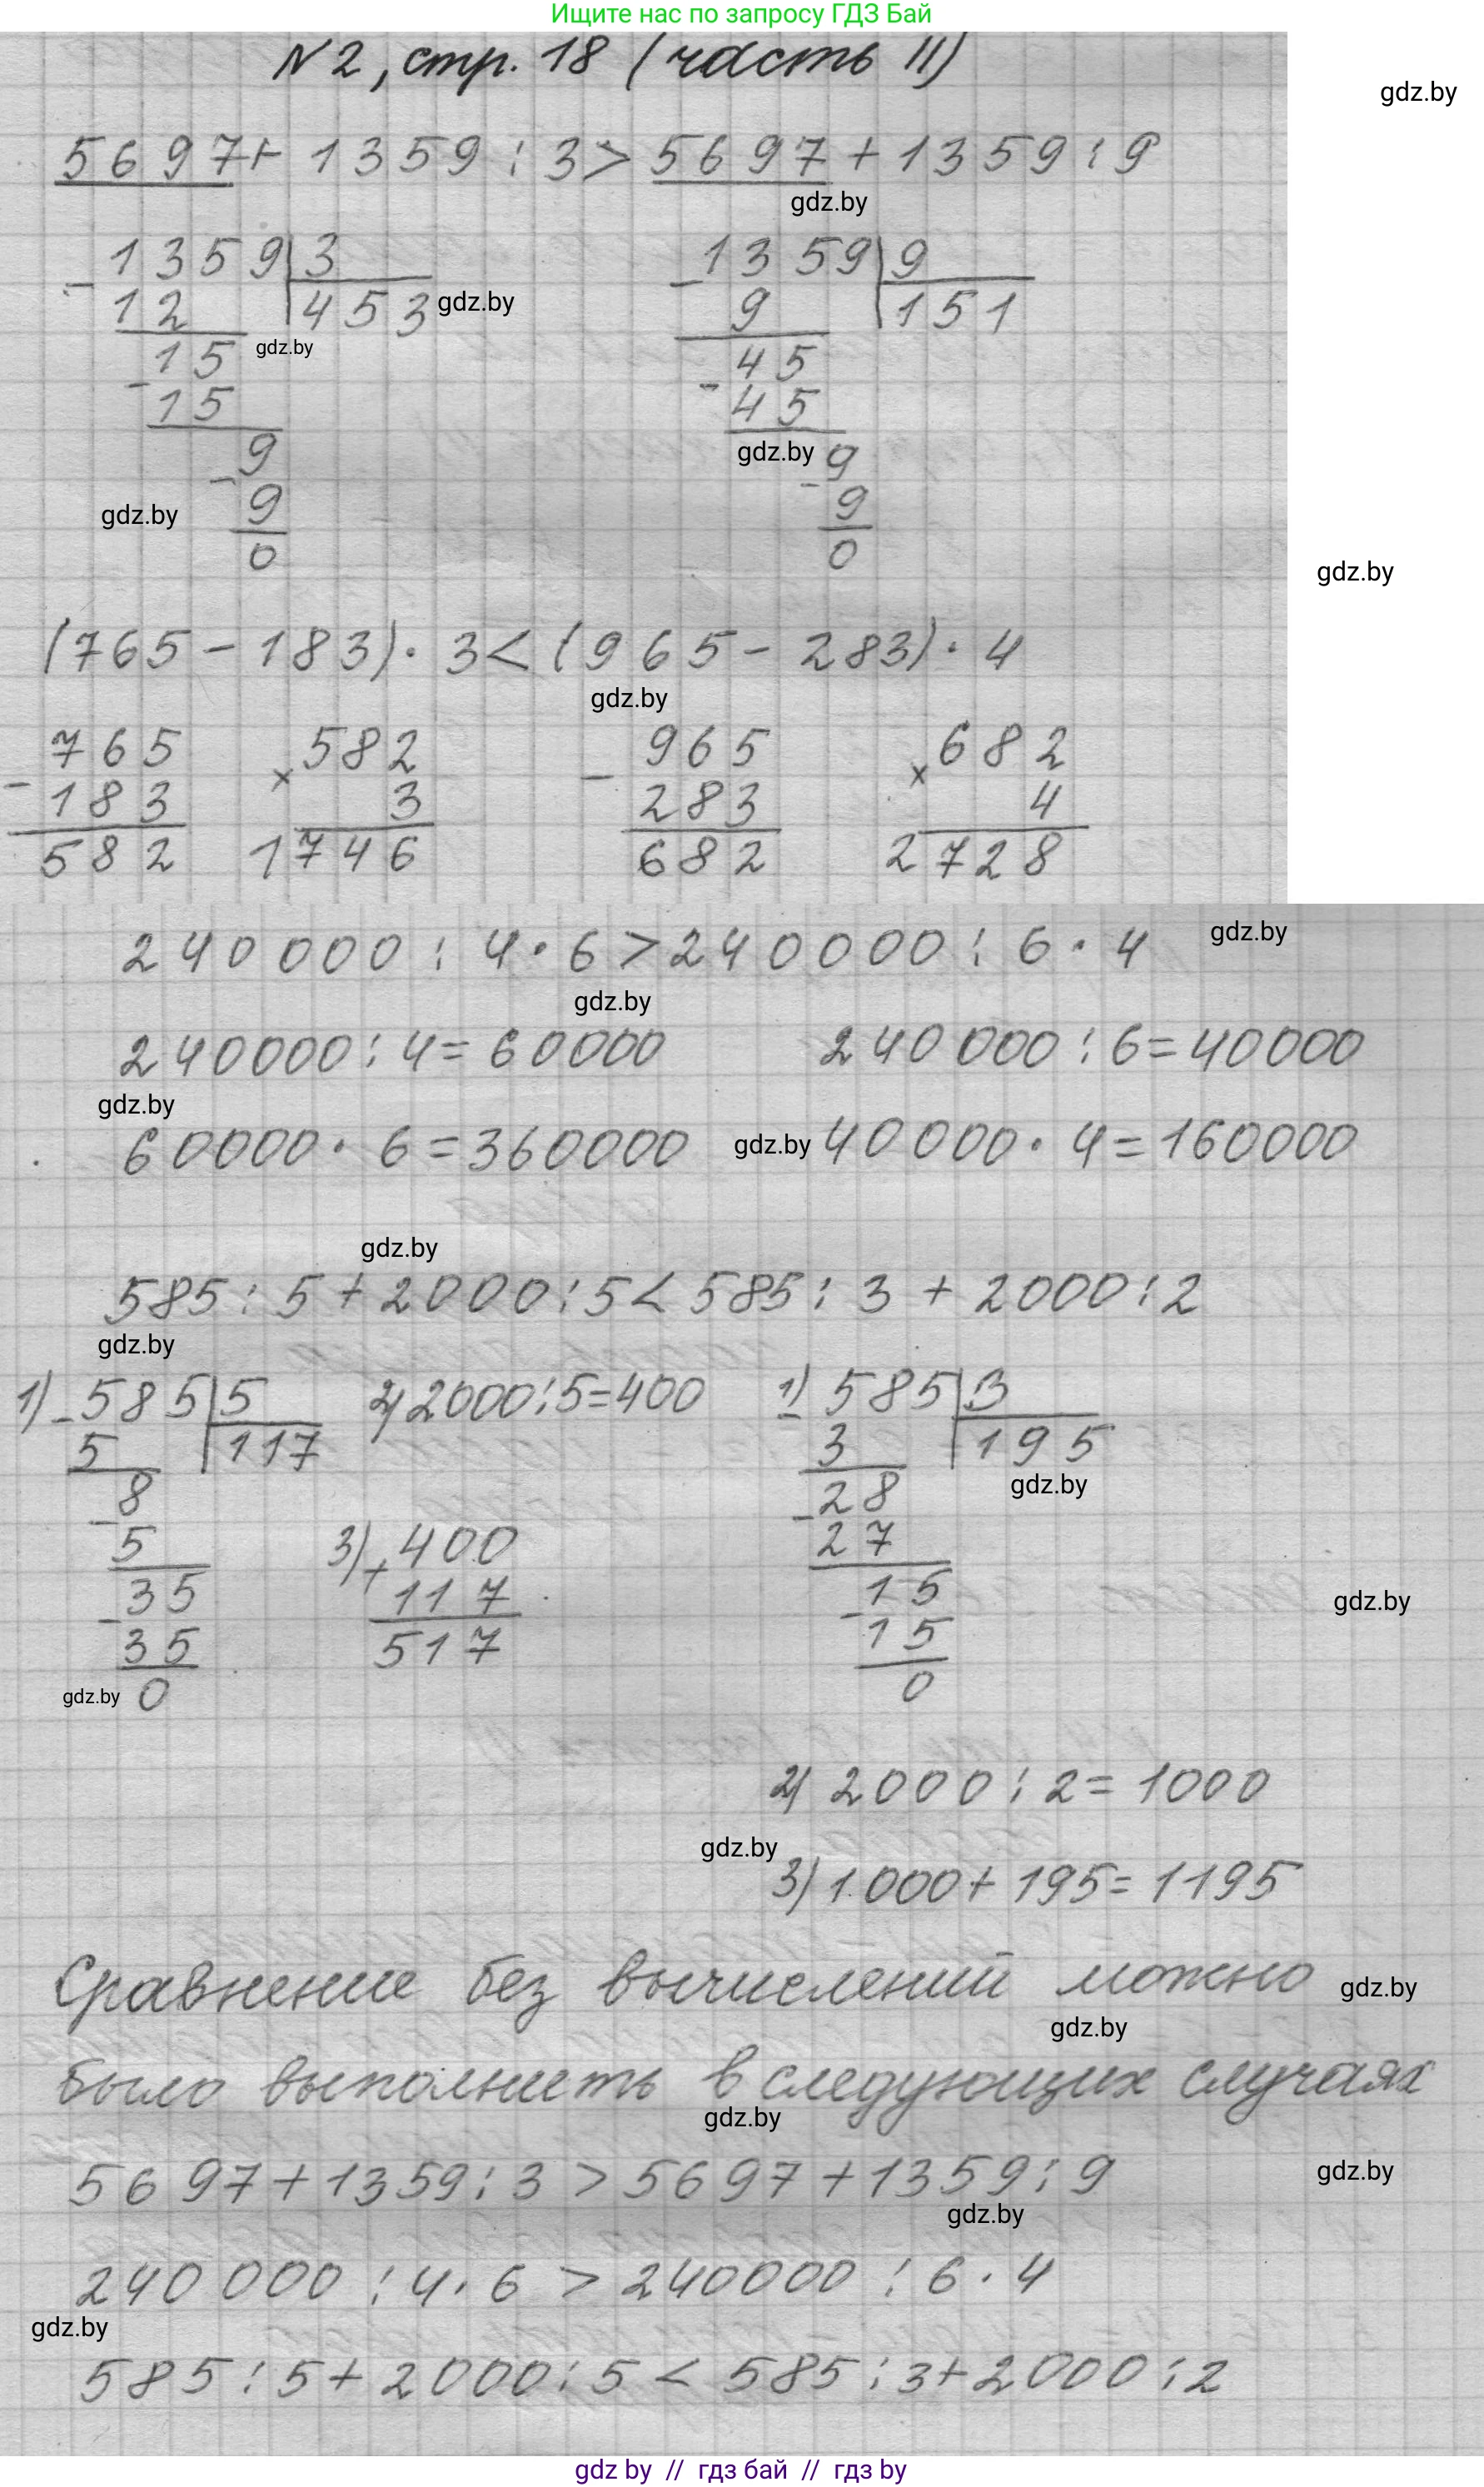 Ищите нас по запросу ГДЗ Бай
N2, стр. 18 (часть II)
gdz.by
5697+ 1359 : 3 > 5697 + 1359 : 9
gdz.by
- 1359 | 3
- 1359 | 9
12
453
gdz.by
9
151
15
gdz.by
45
- 15
- 45
9
gdz.by
9
gdz.by
- 9
- 9
0
0
gdz.by
(765 - 183) · 3 < (965 - 283) · 4
gdz.by
765
× 582
965
× 682
- 183
3
- 283
4
582
1746
682
2728
240000 : 4 · 6 > 240000 : 6 · 4
gdz.by
gdz.by
240000 : 4 = 60000
240000 : 6 = 40000
gdz.by
60000 · 6 = 360000
gdz.by
40000 · 4 = 160000
gdz.by
585 : 5 + 2000 : 5 < 585 : 3 + 2000 : 2
gdz.by
1) - 585 | 5
2) 2000 : 5 = 400
1) - 585 | 3
5
117
3
195
8
28
gdz.by
- 5
3) + 400
- 27
35
117
15
gdz.by
- 35
517
- 15
gdz.by
0
0
2) 2000 : 2 = 1000
gdz.by
3) 1000 + 195 = 1195
Сравнение без вычислений можно
gdz.by
gdz.by
было выполнить в следующих случаях
gdz.by
5697 + 1359 : 3 > 5697 + 1359 : 9
gdz.by
gdz.by
240000 : 4 · 6 > 240000 : 6 · 4
gdz.by
585 : 5 + 2000 : 5 < 585 : 3 + 2000 : 2
gdz by // гдз бай // гдз by